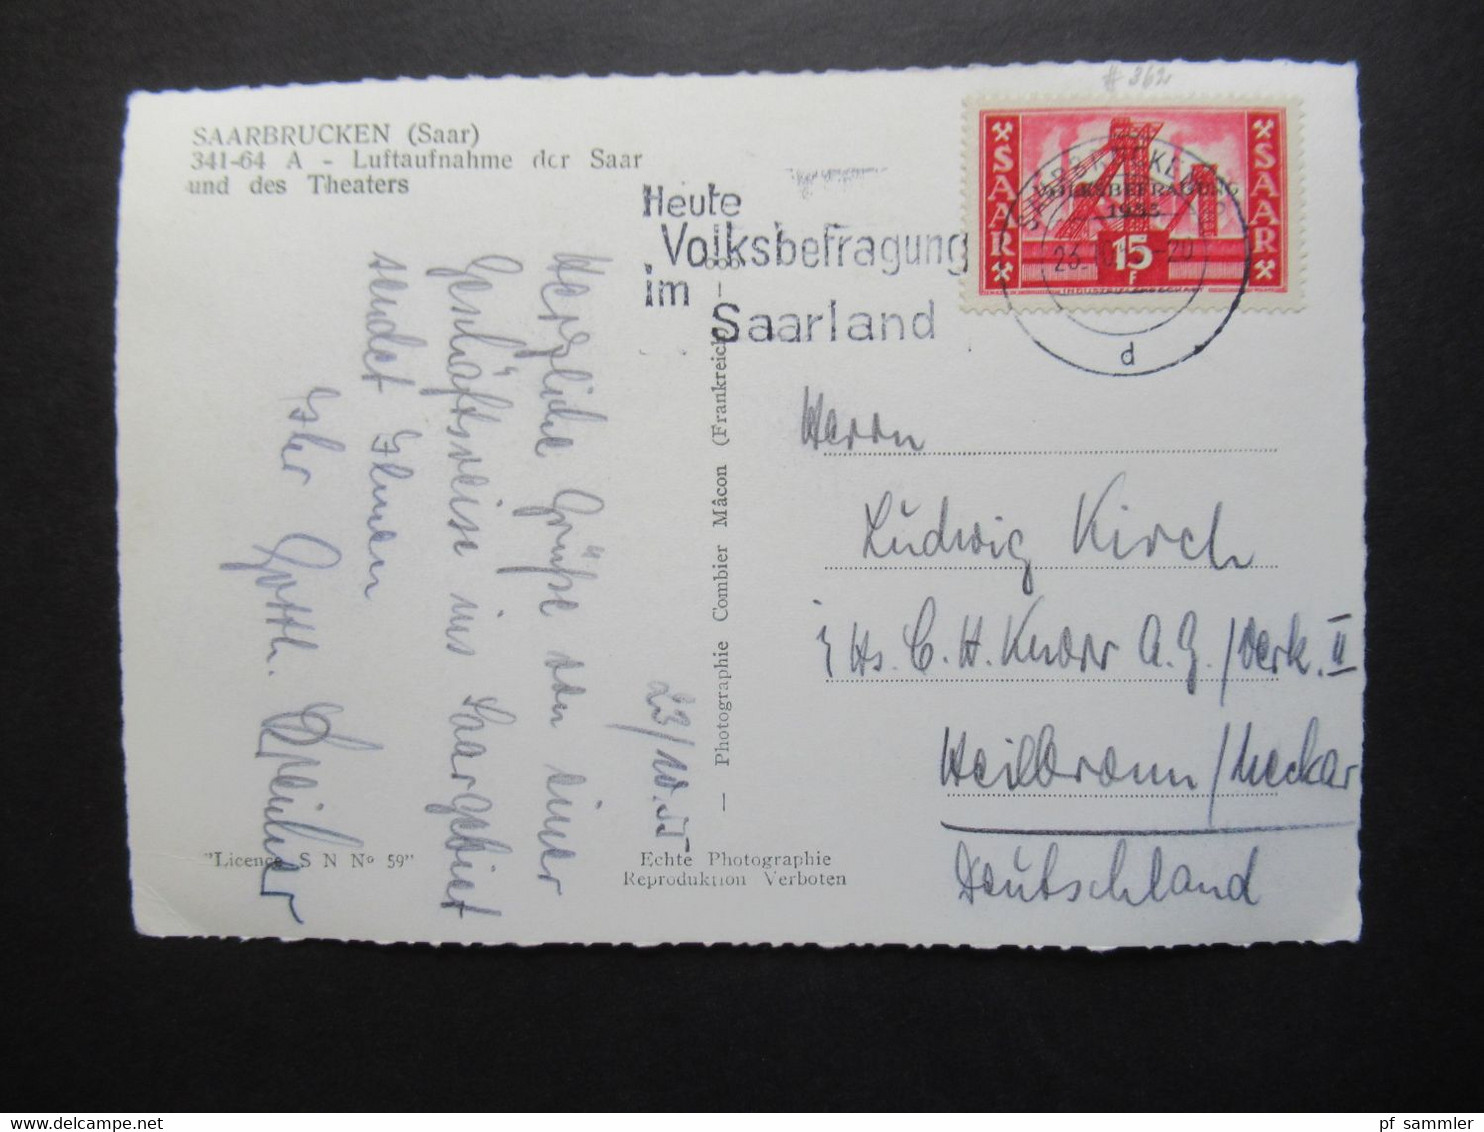 # 362
SAARBRUCKEN (Saar)
341-64 A - Luftaufnahme der Saar
und des Theaters
Heute
Volksbefragung
im
Saarland
SAAR
SAAR
VOLKSBEFRAGUNG
1955
15
F
SAARBRÜCKEN
23.10. 20
d
Herzliche Grüße von einer
Geschäftsreise ins Saargebiet
sendet Ihnen
Ihr Gottl.
23/10.55
— Photographie Combier Mâcon (Frankreich) —
Herrn
Ludwig Kirch
i/ Hs. C. H. Knorr A.G./Werk. II
Heilbronn/Neckar
Deutschland
"Licence S N Nº 59"
Echte Photographie
Reproduktion Verboten
pf sammler